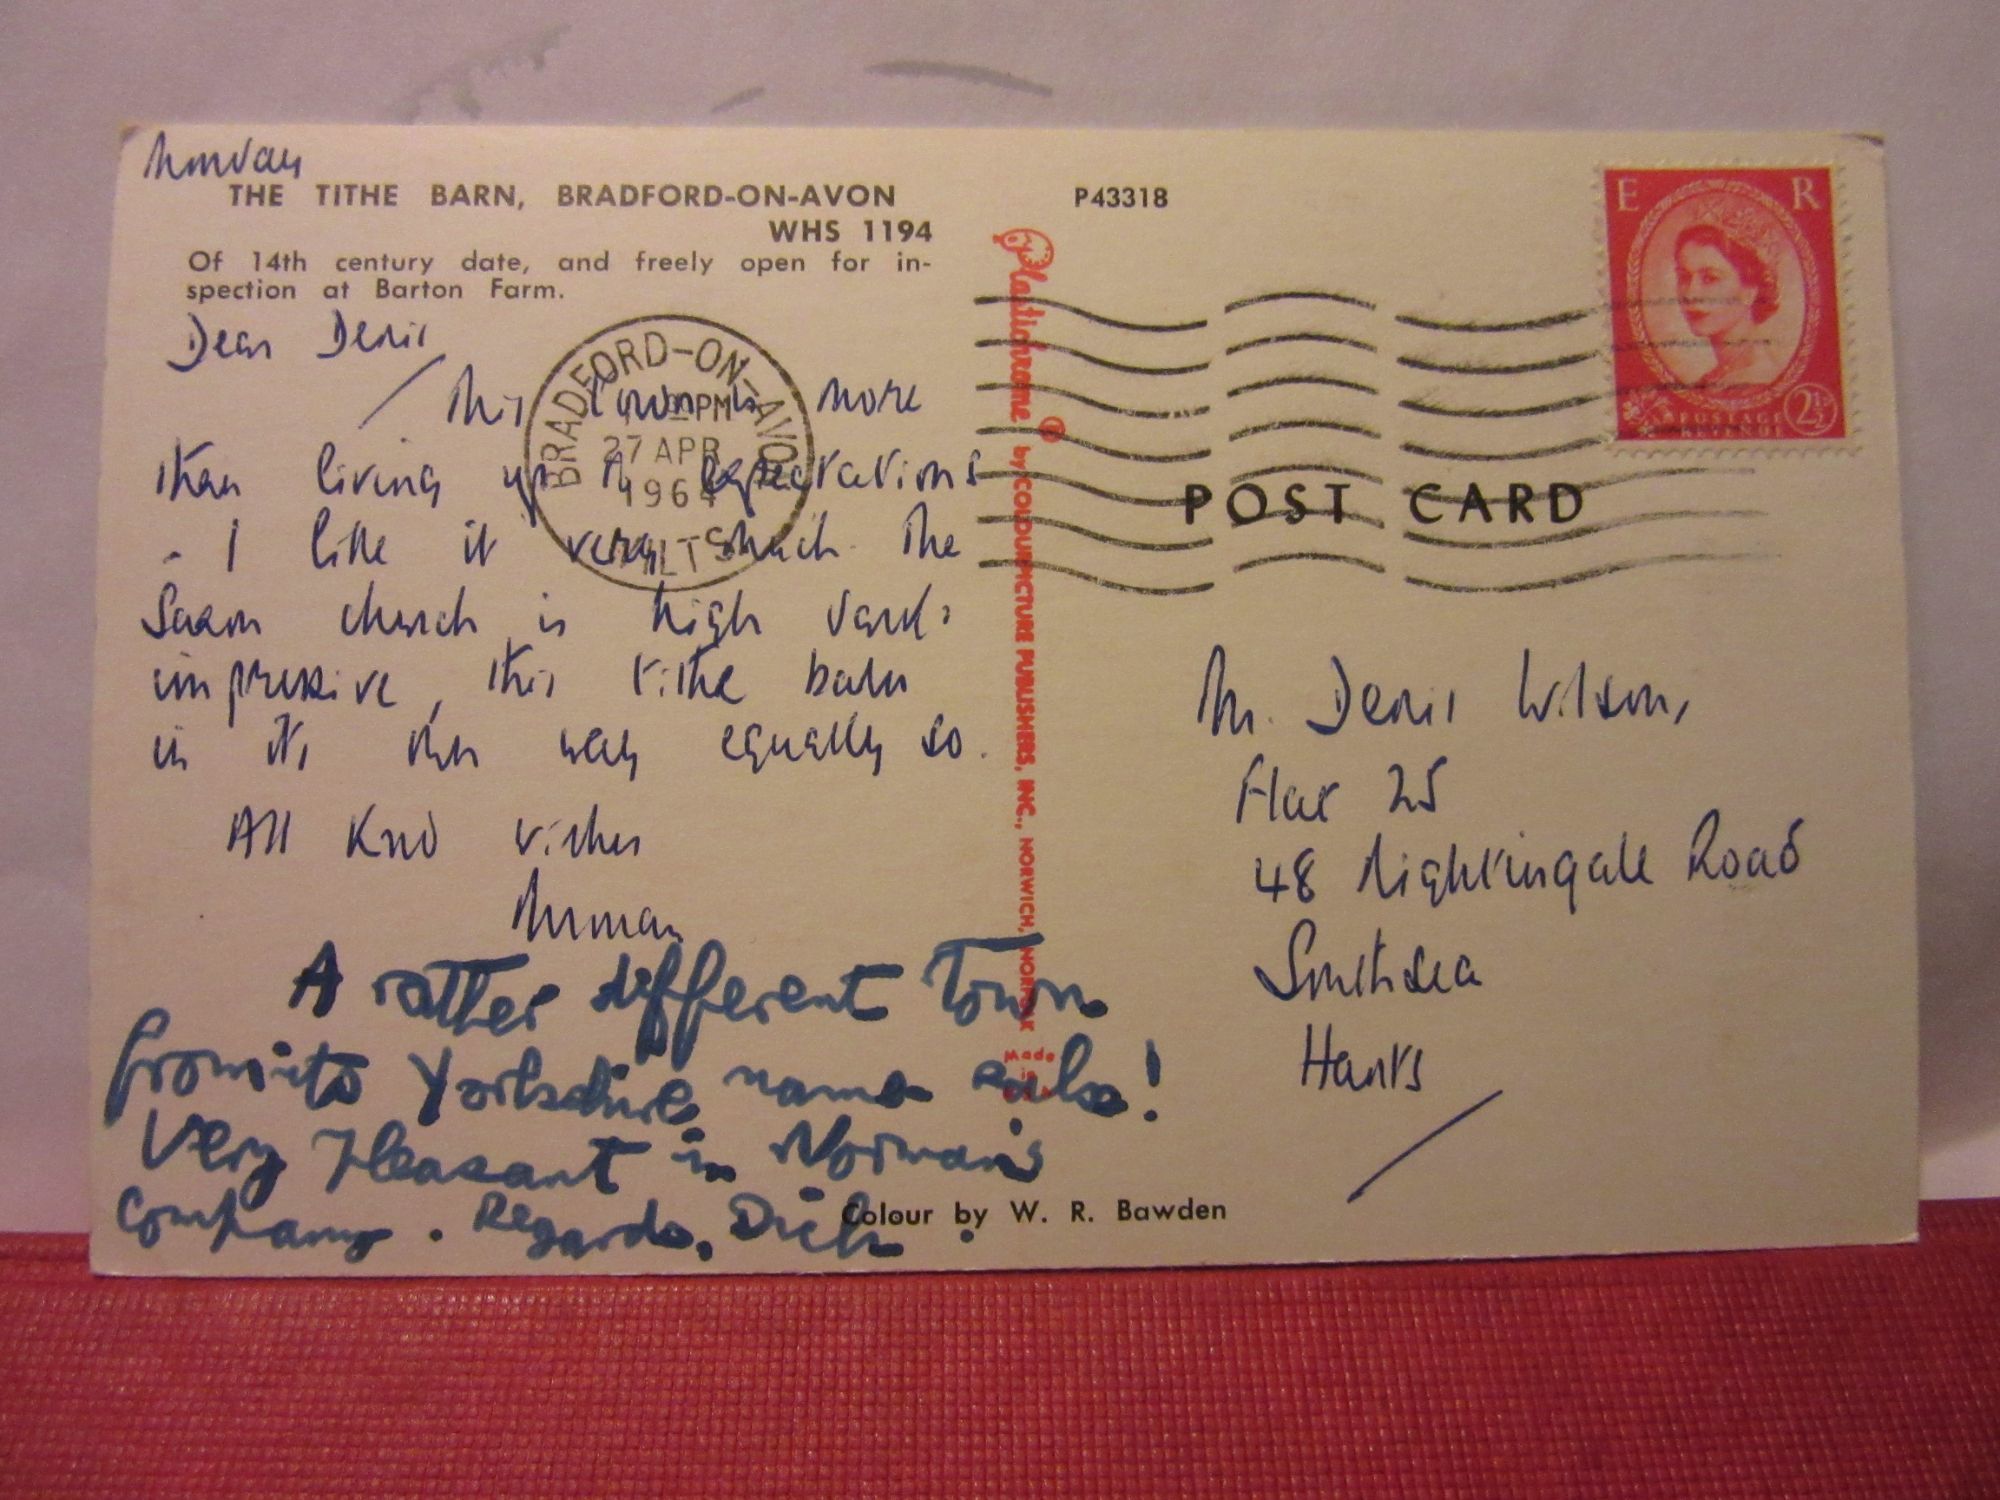 Monday
THE TITHE BARN, BRADFORD-ON-AVON
WHS 1194
Of 14th century date, and freely open for in-
spection at Barton Farm.
Dear Denis
This town is more
than living up to expectations
- I like it very much. The
Saxon church is high &
impressive, this tithe barn
in its own way equally so.
All kind wishes
Norman
A rather different Town
from its Yorkshire name sake!
Very Pleasant in Norman's
Company. Regards, Dick.
BRADFORD-ON-AVON
PM
27 APR
1964
WILTS
Plastichrome ® by COLOURPICTURE PUBLISHERS, INC., NORWICH, NORFOLK
Made
P43318
E R
POSTAGE
REVENUE
2½
POST CARD
Mr. Denis Wilson,
Flat 25
48 Nightingale Road
Southsea
Hants
Colour by W. R. Bawden